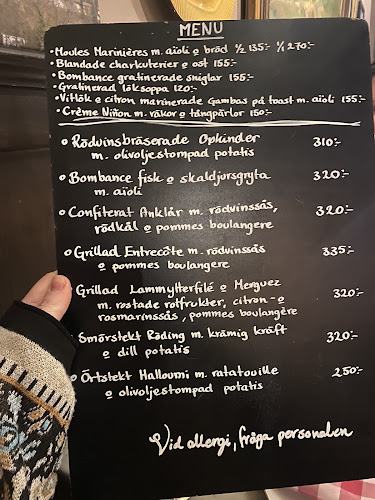 MENU
• Moules Marinières m. aïoli & bröd ½ 135:- ¼ 270:-
• Blandade charkuterier & ost 155:-
• Bombance gratinerade sniglar 155:-
• Gratinerad löksoppa 120:-
• Vitlök & citron marinerade Gambas på toast m. aïoli 155:-
• Crème Niñon m. räkor & tångpärlor 150:-
• Rödvinsbräserade Oxkinder 310:-
m. olivoljestompad potatis
• Bombance fisk & skaldjursgryta 320:-
m. aïoli
• Confiterat Anklår m. rödvinssås, 320:-
rödkål & pommes boulangere
• Grillad Entrecôte m. rödvinssås 335:-
& pommes boulangere
Grillad Lammytterfilé & Merguez
m. rostade rotfrukter, citron- & 320:-
rosmarinssås, pommes boulangère
Smörstekt Röding m. krämig kräft 320:-
& dill potatis
• Örtstekt Halloumi m. ratatouille 250:-
& olivoljestompad potatis
Vid allergi, fråga personalen